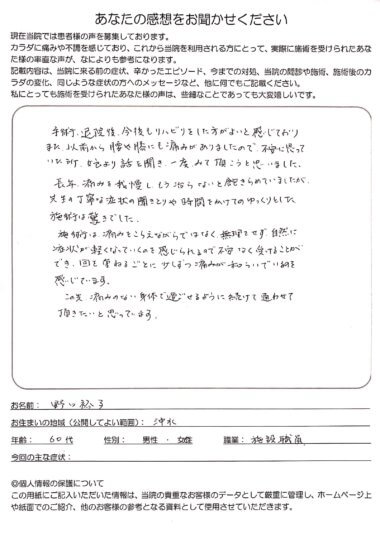 あなたの感想をお聞かせください
現在当院では患者様の声を募集しております。
カラダに痛みや不調を感じており、これから当院を利用される方にとって、実際に施術を受けられたあな
た様の率直な声が、なによりも参考になります。
記載内容は、当院に来る前の症状、辛かったエピソード、今までの対処、当院の問診や施術、施術後のカ
ラダの変化、同じような症状の方へのメッセージなど、他に何でもご記載ください。
私にとっても施術を受けられたあなた様の声は、些細なことであっても大変嬉しいです。
手術、退院後、今後もリハビリをした方がよいと感じており
また、以前から腰や膝にも痛みがありましたので、不安に思って
いた時、妹より話を聞き、一度みて頂こうと思いました。
長年、痛みを我慢し、もう治らないと飽きらめていましたが、
先生の丁寧な症状の聞きとりや時間をかけてのゆっくりとした
施術には驚きでした。
施術は痛みをこらえながらではなく、無理をせず自然に
症状が軽くなっていくのを感じられるので不安なく受けることが
でき、回を重ねるごとに少しずつ痛みが和らいでいるのを
感じています。
この先、痛みのない身体で過ごせるように続けて通わせて
頂きたいと思っています。
お名前:野口
お住まいの地域(公開してよい範囲):沖水
年齢:60代 性別: 男性 ・ 女性 職業:施設職員
今回の主な症状:
◎個人情報の保護について
この用紙にご記入いただいた情報は、当院の貴重なお客様のデータとして厳重に管理し、ホームページ上
や紙面でのご紹介、他のお客様の参考となる資料として使用させていただきます。